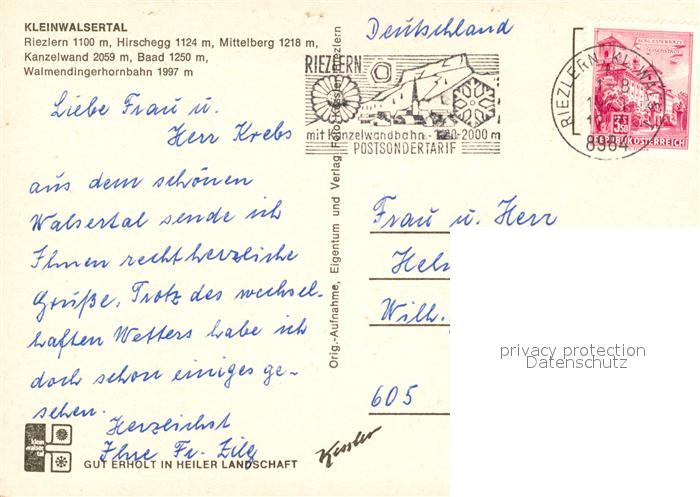 KLEINWALSERTAL
Riezlern 1100 m, Hirschegg 1124 m, Mittelberg 1218 m,
Kanzelwand 2059 m, Baad 1250 m,
Walmendingerhornbahn 1997 m
Liebe Frau u.
Herr Krebs
aus dem schönen
Walsertal sende ich
Ihnen recht herzliche
Grüße. Trotz des wechsel-
haften Wetters habe ich
doch schon einiges ge-
sehen.
Herzlichst
Ihre Fr. Zilg
GUT ERHOLT IN HEILER LANDSCHAFT
Orig.-Aufnahme, Eigentum und Verlag
Kessler
Deutschland
RIEZLERN
mit Kanzelwandbahn
2000 m
POSTSONDERTARIF
RIEZLERN
8984
3.50
REPUBLIK ÖSTERREICH
Frau u. Herr
Wilh.
605
privacy protection
Datenschutz